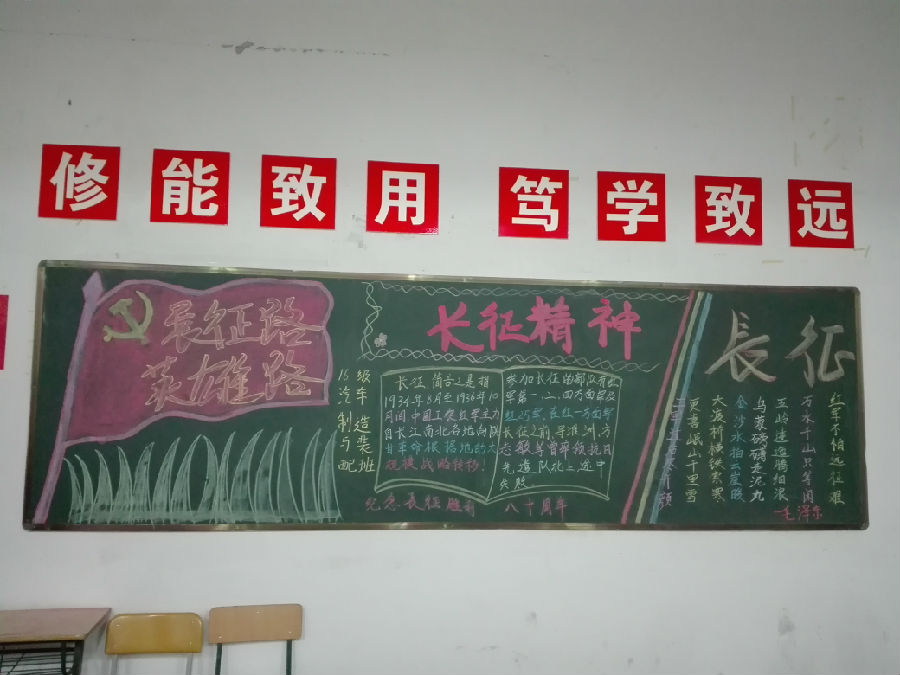 修能致用 笃学致远
长征路
英雄路
15级
汽车
制造
与装
配班
长征精神
长征,简言之是指
1934年8月至1936年10
月间中国工农红军主力
自长江南北各地向陕
甘革命根据地的大
规模战略转移!
参加长征的部队有红
军第一、二、四方面军及
红25军,在红一方面军
长征之前,寻淮洲、方
志敏等曾率领抗日
先遣队北上途中
失败
纪念长征胜利 八十周年
长征
红军不怕远征难
万水千山只等闲
五岭逶迤腾细浪
乌蒙磅礴走泥丸
金沙水拍云崖暖
大渡桥横铁索寒
更喜岷山千里雪
三军过后尽开颜
毛泽东